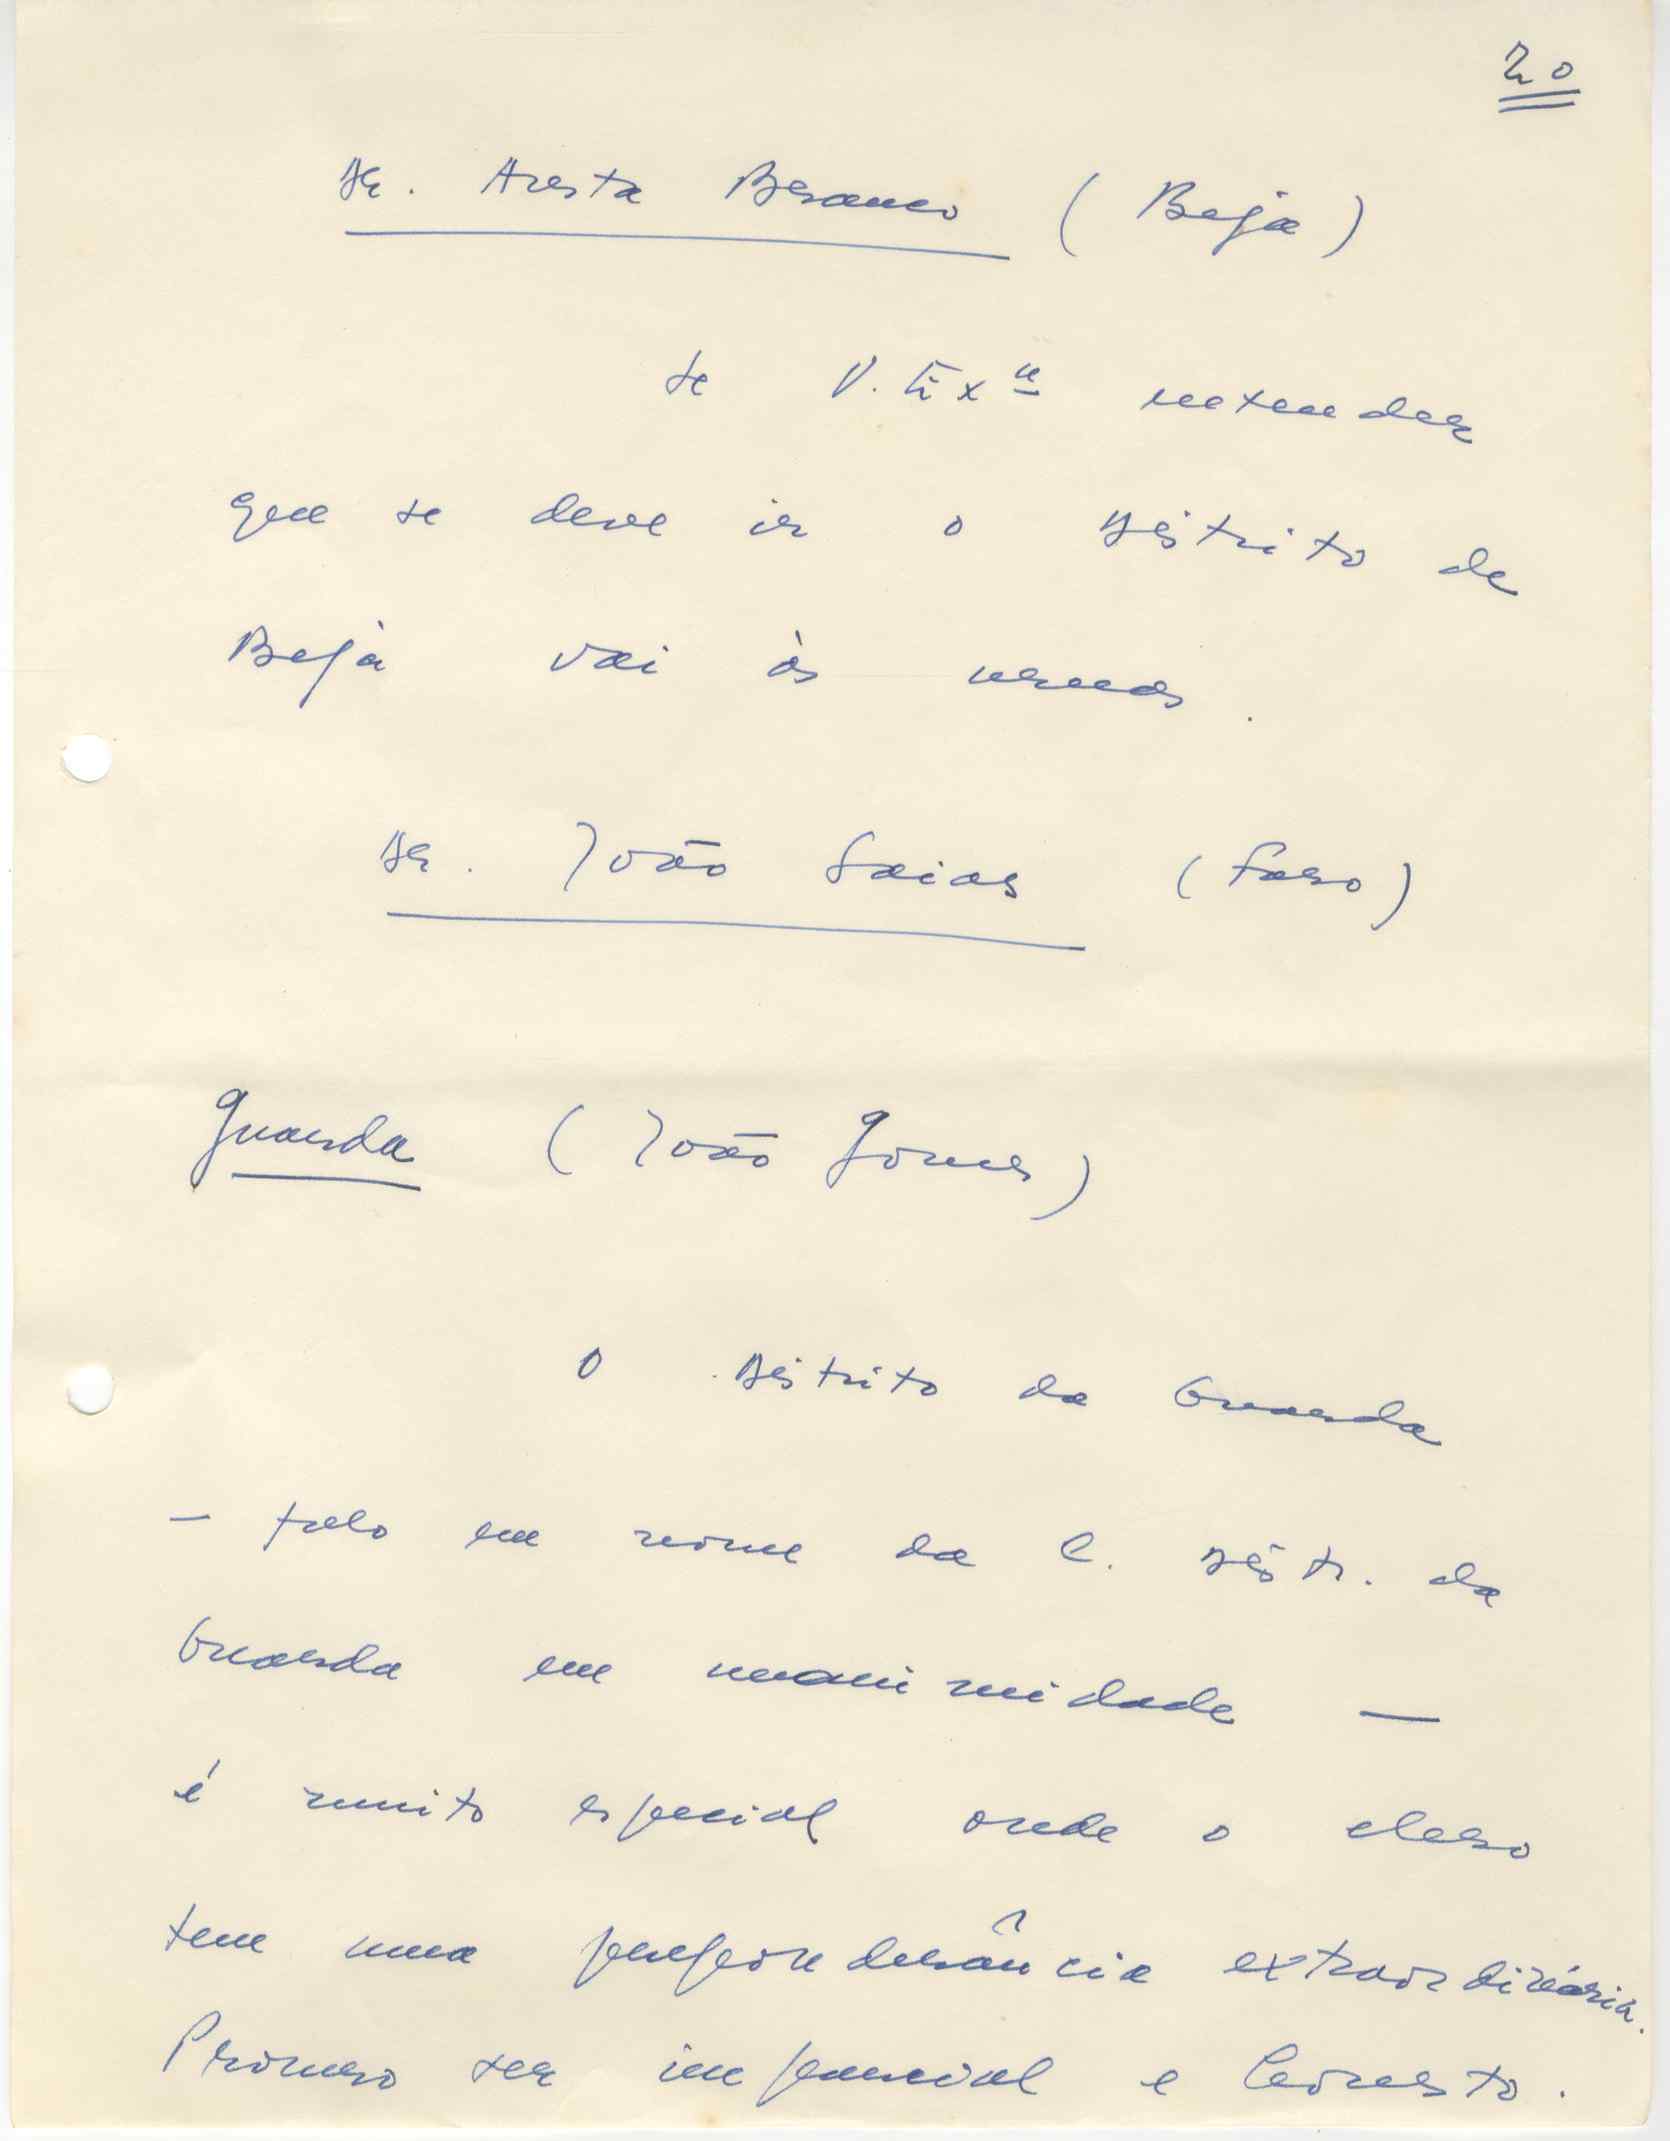 20
Dr. Aresta Branco (Beja)
Se V. Exª entender
que se deve ir o Distrito de
Beja vai às urnas.
Dr. João Saias (Faro)
Guarda (João Gomes)
O Distrito da Guarda
- falo em nome da C. Distr. da
Guarda em unanimidade —
é muito especial onde o clero
tem uma preponderância extraordinária.
Procuro ser imparcial e honesto.